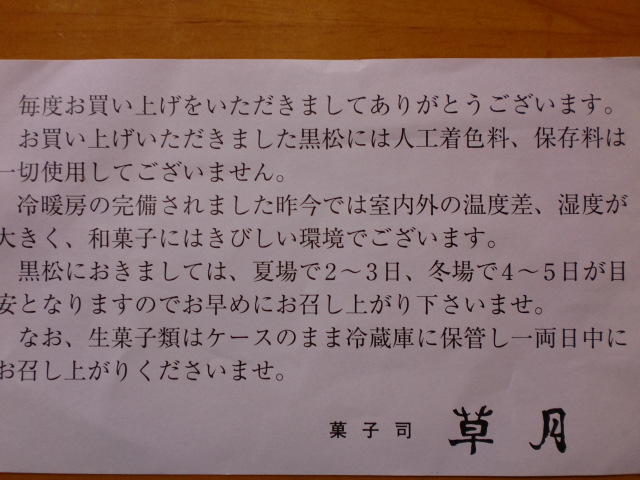 毎度お買い上げをいただきましてありがとうございます。
お買い上げいただきました黒松には人工着色料、保存料は
一切使用してございません。
冷暖房の完備されました昨今では室内外の温度差、湿度が
大きく、和菓子にはきびしい環境でございます。
黒松におきましては、夏場で2〜3日、冬場で4〜5日が目
安となりますのでお早めにお召し上がり下さいませ。
なお、生菓子類はケースのまま冷蔵庫に保管し一両日中に
お召し上がりくださいませ。
菓子司 草月